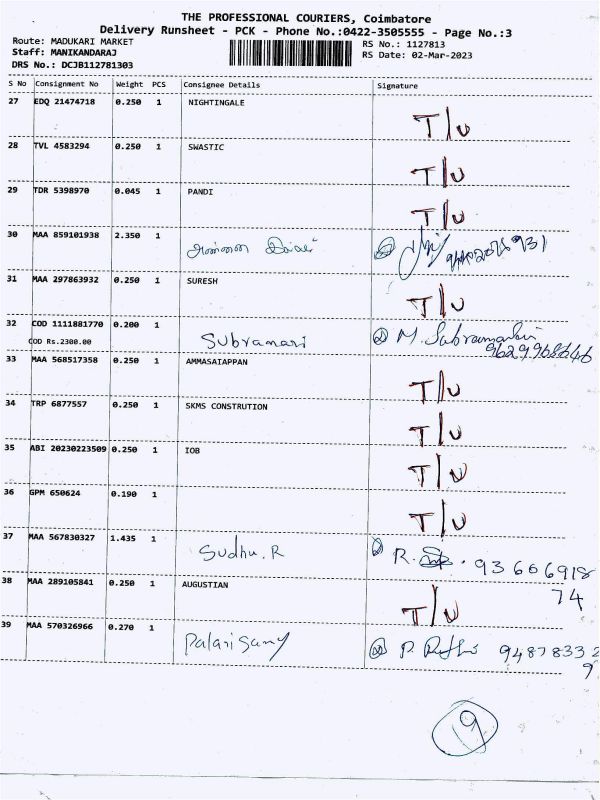 THE PROFESSIONAL COURIERS, Coimbatore
Delivery Runsheet - PCK - Phone No.:0422-3505555 - Page No.:3
Route: MADUKARI MARKET
Staff: MANIKANDARAJ
DRS No.: DCJB112781303
RS No.: 1127813
RS Date: 02-Mar-2023
S No Consignment No Weight PCS Consignee Details Signature
27 EDQ 21474718 0.250 1 NIGHTINGALE
T/U
28 TVL 4583294 0.250 1 SWASTIC
T/U
29 TDR 5398970 0.045 1 PANDI
T/U
30 MAA 859101938 2.350 1
31 MAA 297863932 0.250 1 SURESH
T/U
32 COD 1111881770 0.200 1 Subramani M. Subramani
COD Rs.2300.00 9629968646
33 MAA 568517358 0.250 1 AMMASAIAPPAN
T/U
34 TRP 6877557 0.250 1 SKMS CONSTRUTION
T/U
35 ABI 20230223509 0.250 1 IOB
T/U
36 GPM 650624 0.190 1
T/U
37 MAA 567830327 1.435 1 Sudhu.R R. 93606918
74
38 MAA 289105841 0.250 1 AUGUSTIAN
T/U
39 MAA 570326966 0.270 1 Palanisamy P. 94878332
9
19